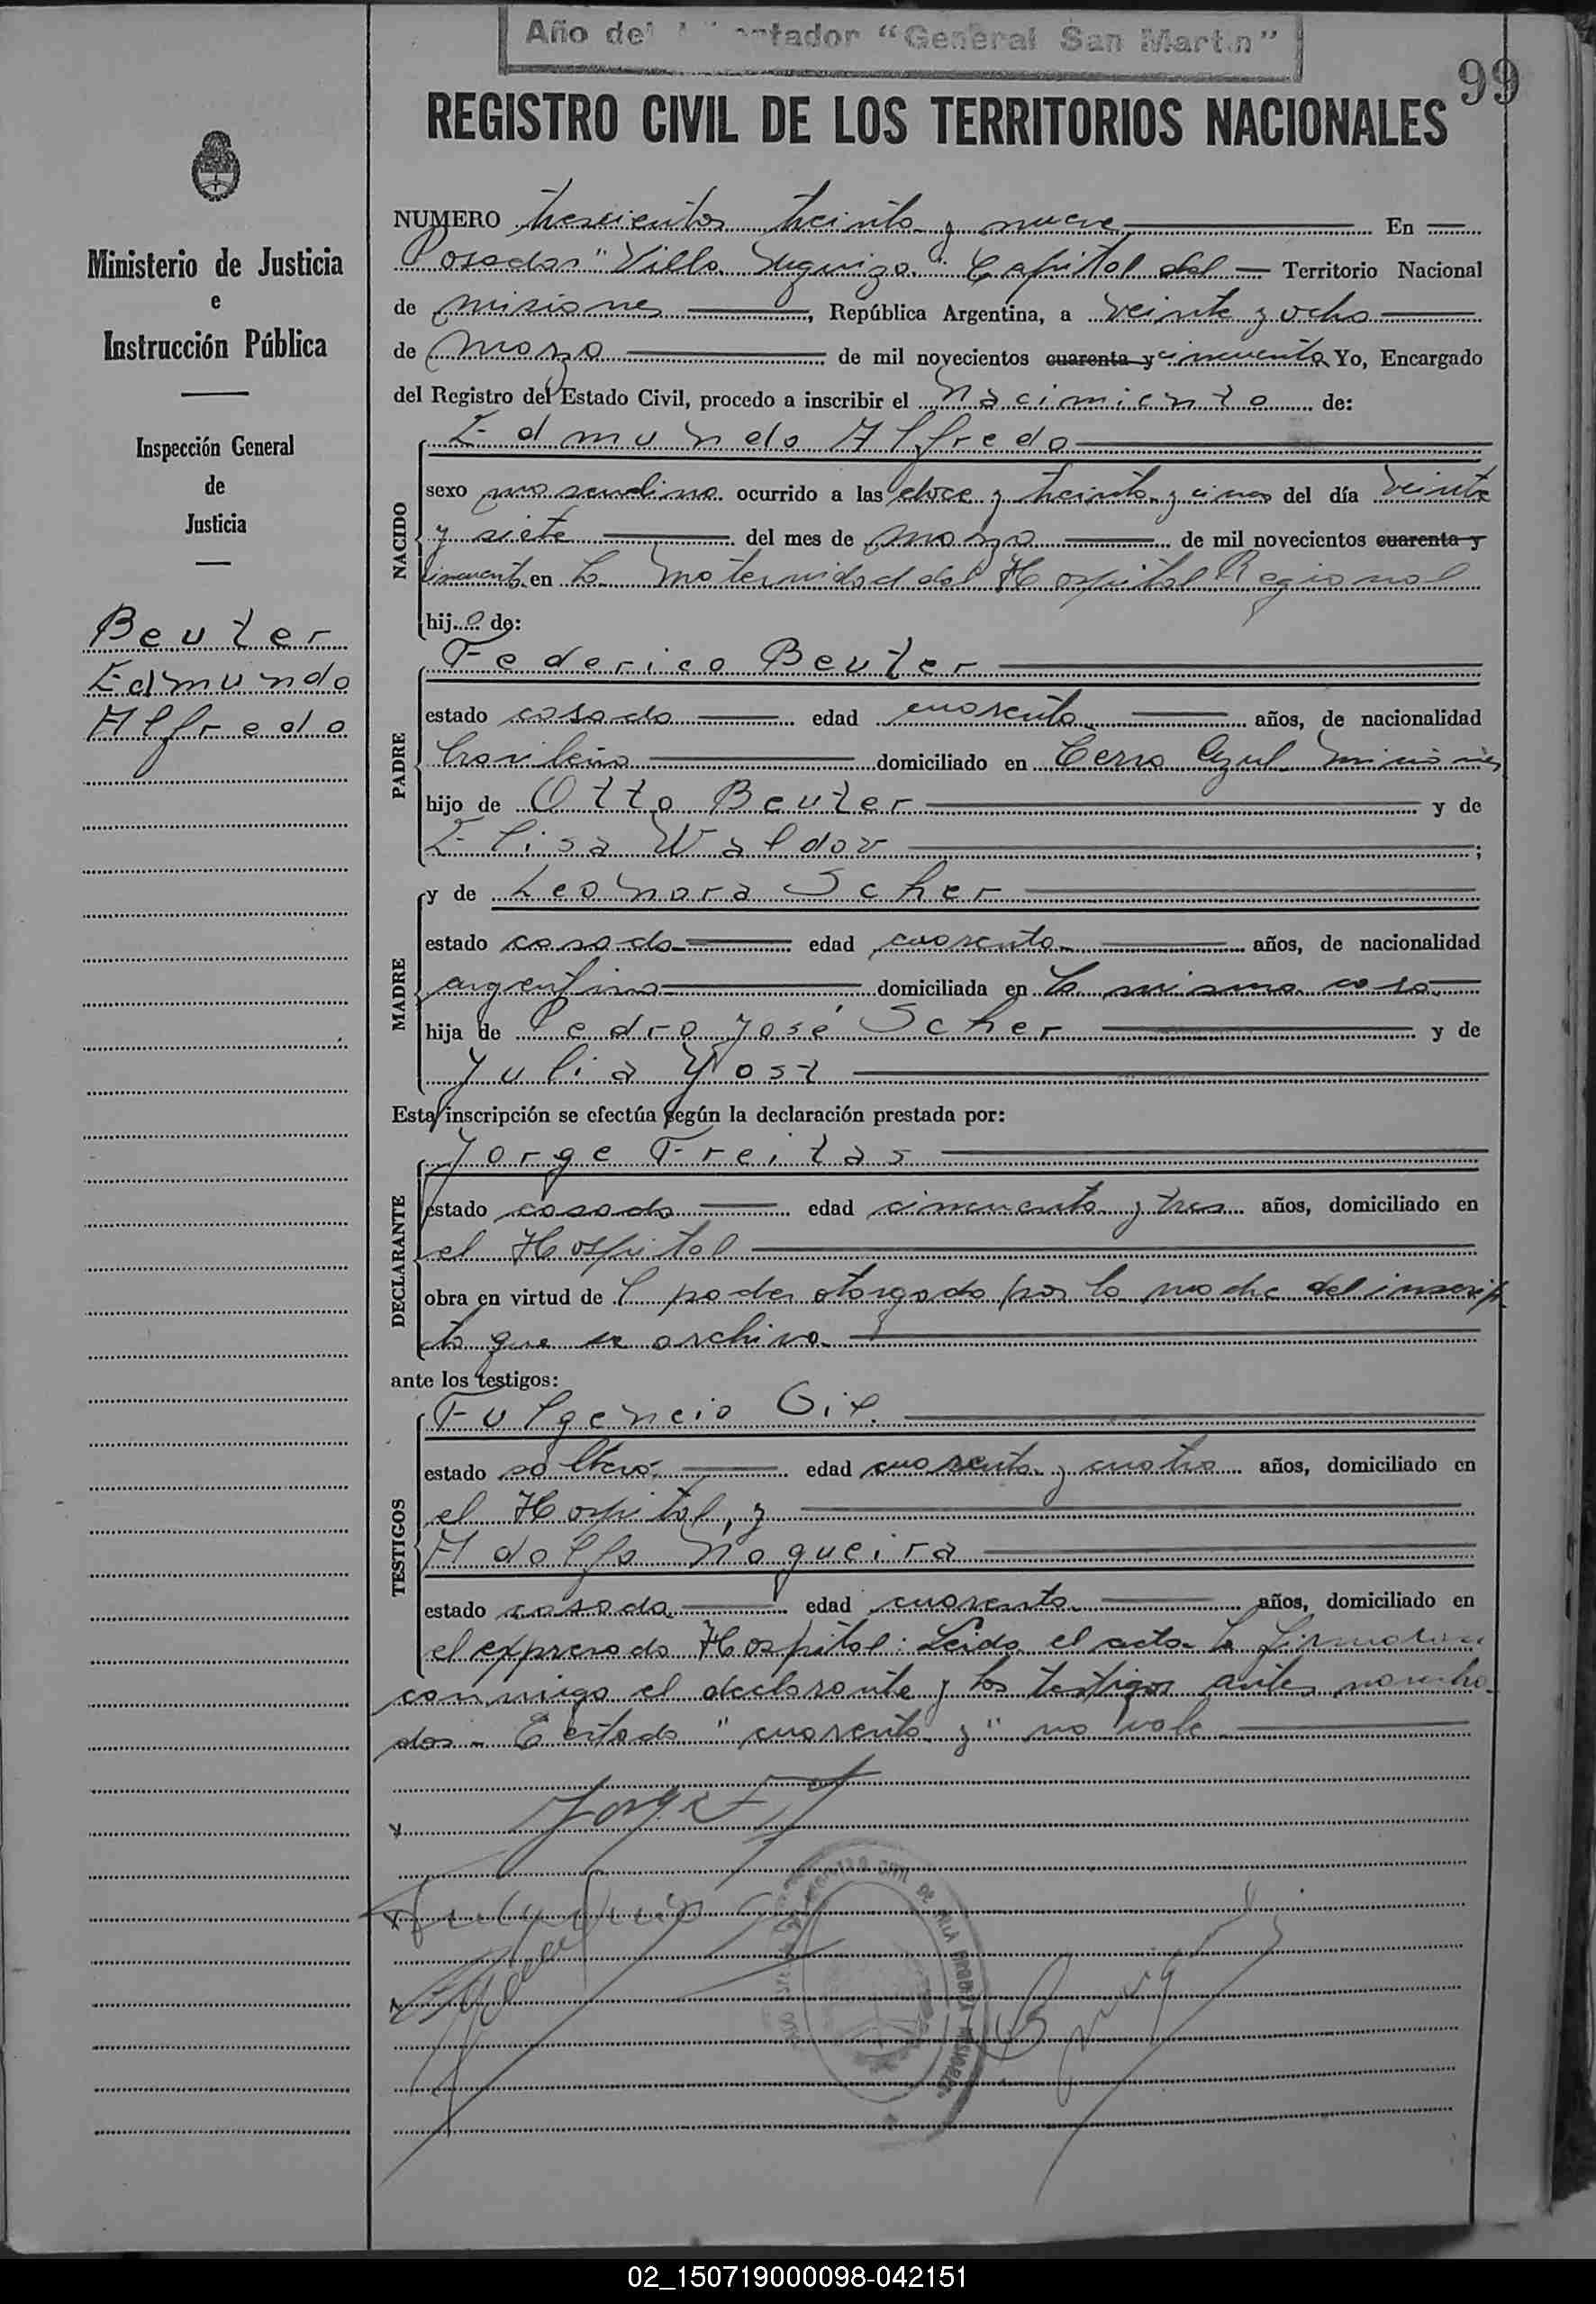 Año del Libertador "General San Martin"
99
REGISTRO CIVIL DE LOS TERRITORIOS NACIONALES
Ministerio de Justicia
e
Instrucción Pública
Inspección General
de
Justicia
Beuter
Edmundo
Alfredo
NUMERO trescientos treinta y nueve En
Posadas "Villa Urquiza" Capital del Territorio Nacional
de Misiones, República Argentina, a veinte y ocho
de Marzo de mil novecientos cuarenta y cincuenta Yo, Encargado
del Registro del Estado Civil, procedo a inscribir el Nacimiento de:
NACIDO
Edmundo Alfredo
sexo masculino ocurrido a las doce y treinta y cinco del día veinte
y siete del mes de Marzo de mil novecientos cuarenta y
cincuenta en la Maternidad del Hospital Regional
hijo de:
PADRE
Federico Beuter
estado casado edad cuarenta años, de nacionalidad
brasileña domiciliado en Cerro Azul Misiones
hijo de Otto Beuter y de
Elisa Waldov;
MADRE
y de Leonora Scher
estado casada edad cuarenta años, de nacionalidad
argentina domiciliada en la misma casa
hija de Pedro José Scher y de
Julia Yost
Esta inscripción se efectúa según la declaración prestada por:
DECLARANTE
Jorge Freitas
estado casado edad cincuenta y tres años, domiciliado en
el Hospital
obra en virtud de l poder otorgado por la madre del inscrip
to que se archiva
ante los testigos:
TESTIGOS
Fulgencio Gil
estado soltero edad cuarenta y cuatro años, domiciliado en
el Hospital, y
Adolfo Nogueira
estado casado edad cuarenta años, domiciliado en
el expresado Hospital: Leida el acta la firmaron
conmigo el declarante y los testigos antes nombra
dos - E testado "cuarenta y" no vale
02_150719000098-042151